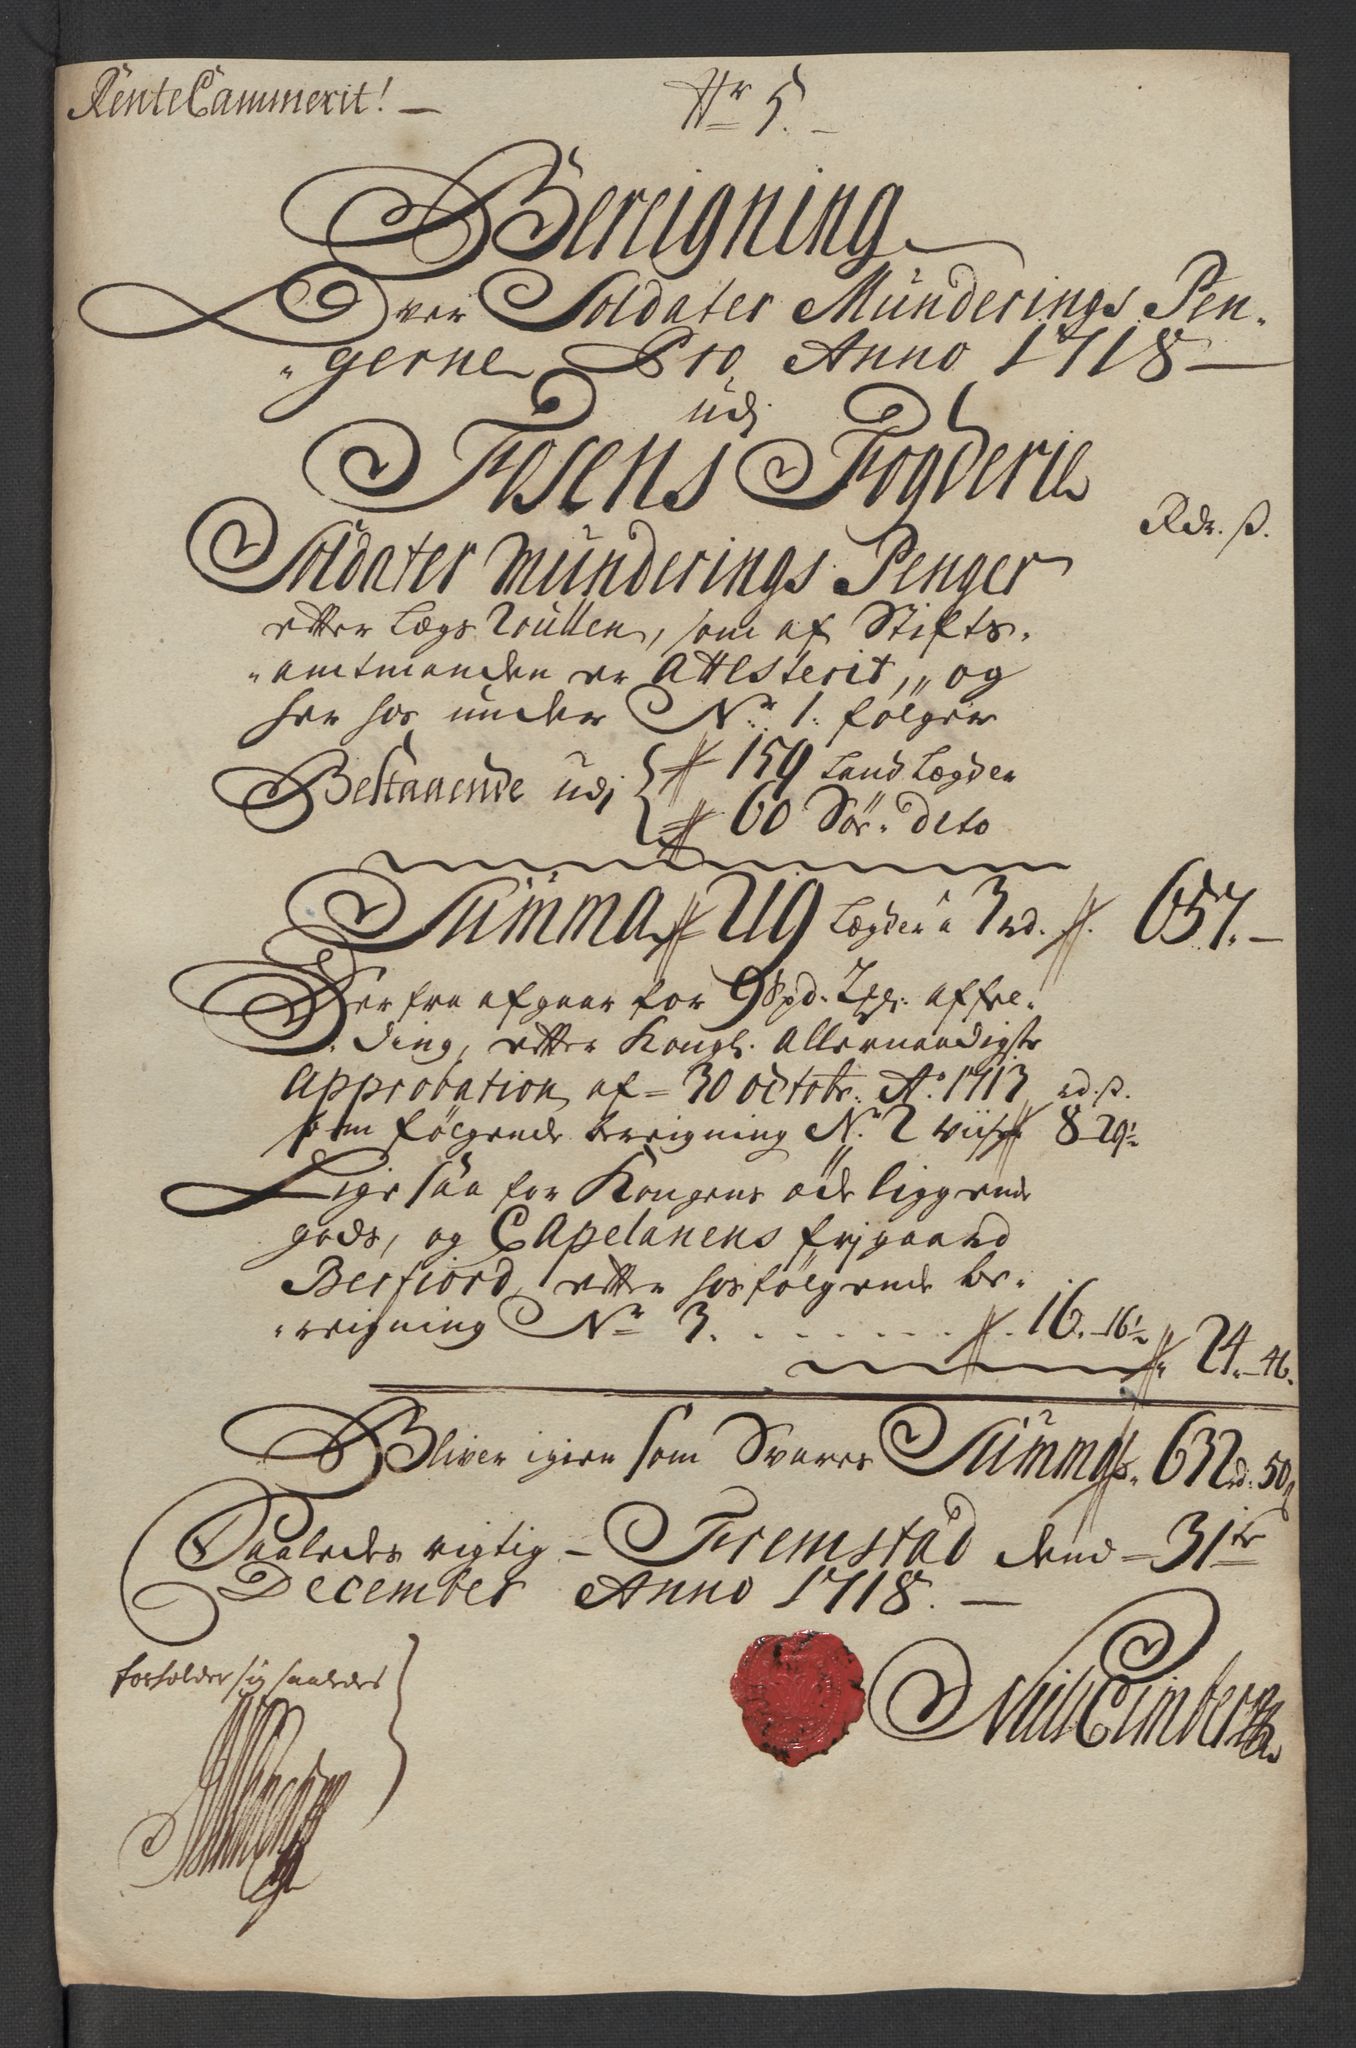 RenteCammerit! —
Nr 5. —
Bereigning
Over Soldater Münderings Pen-
„gerne Pro Anno 1718 —
udj
Fosens Fogderie
Rdr. ß.
Soldater Münderings Penger
efter Legs Rullen, som af Stifts-
„amtmanden er Attesterit, og
her hos under Nr 1. følger
Bestaaende udj 159 Land Legder
60 Siør. Dito
Summa 219 Legder a 3 rd. 657. —
Der fra afgaar for 9 Spd. affel-
ding, efter Kongl. Allernaadigste
Approbation af 30 octobr. Ao. 1713 rd. ß.
som følgende bereigning Nr. 2 viiser 8 - 29½
Lige saa for Kongens øde liggende
gods, og Capelanens frjgaard
Berfiord, efter hosfølgende be-
„reigning Nr 3. . . . . . . . . 16. - 16½
24. - 46.
Bliver igien som Svares Summa 632 rd. 50ß
Saaledes rigtig — Fremstad dend 31te
December Anno 1718. —
forholder sig saaledes